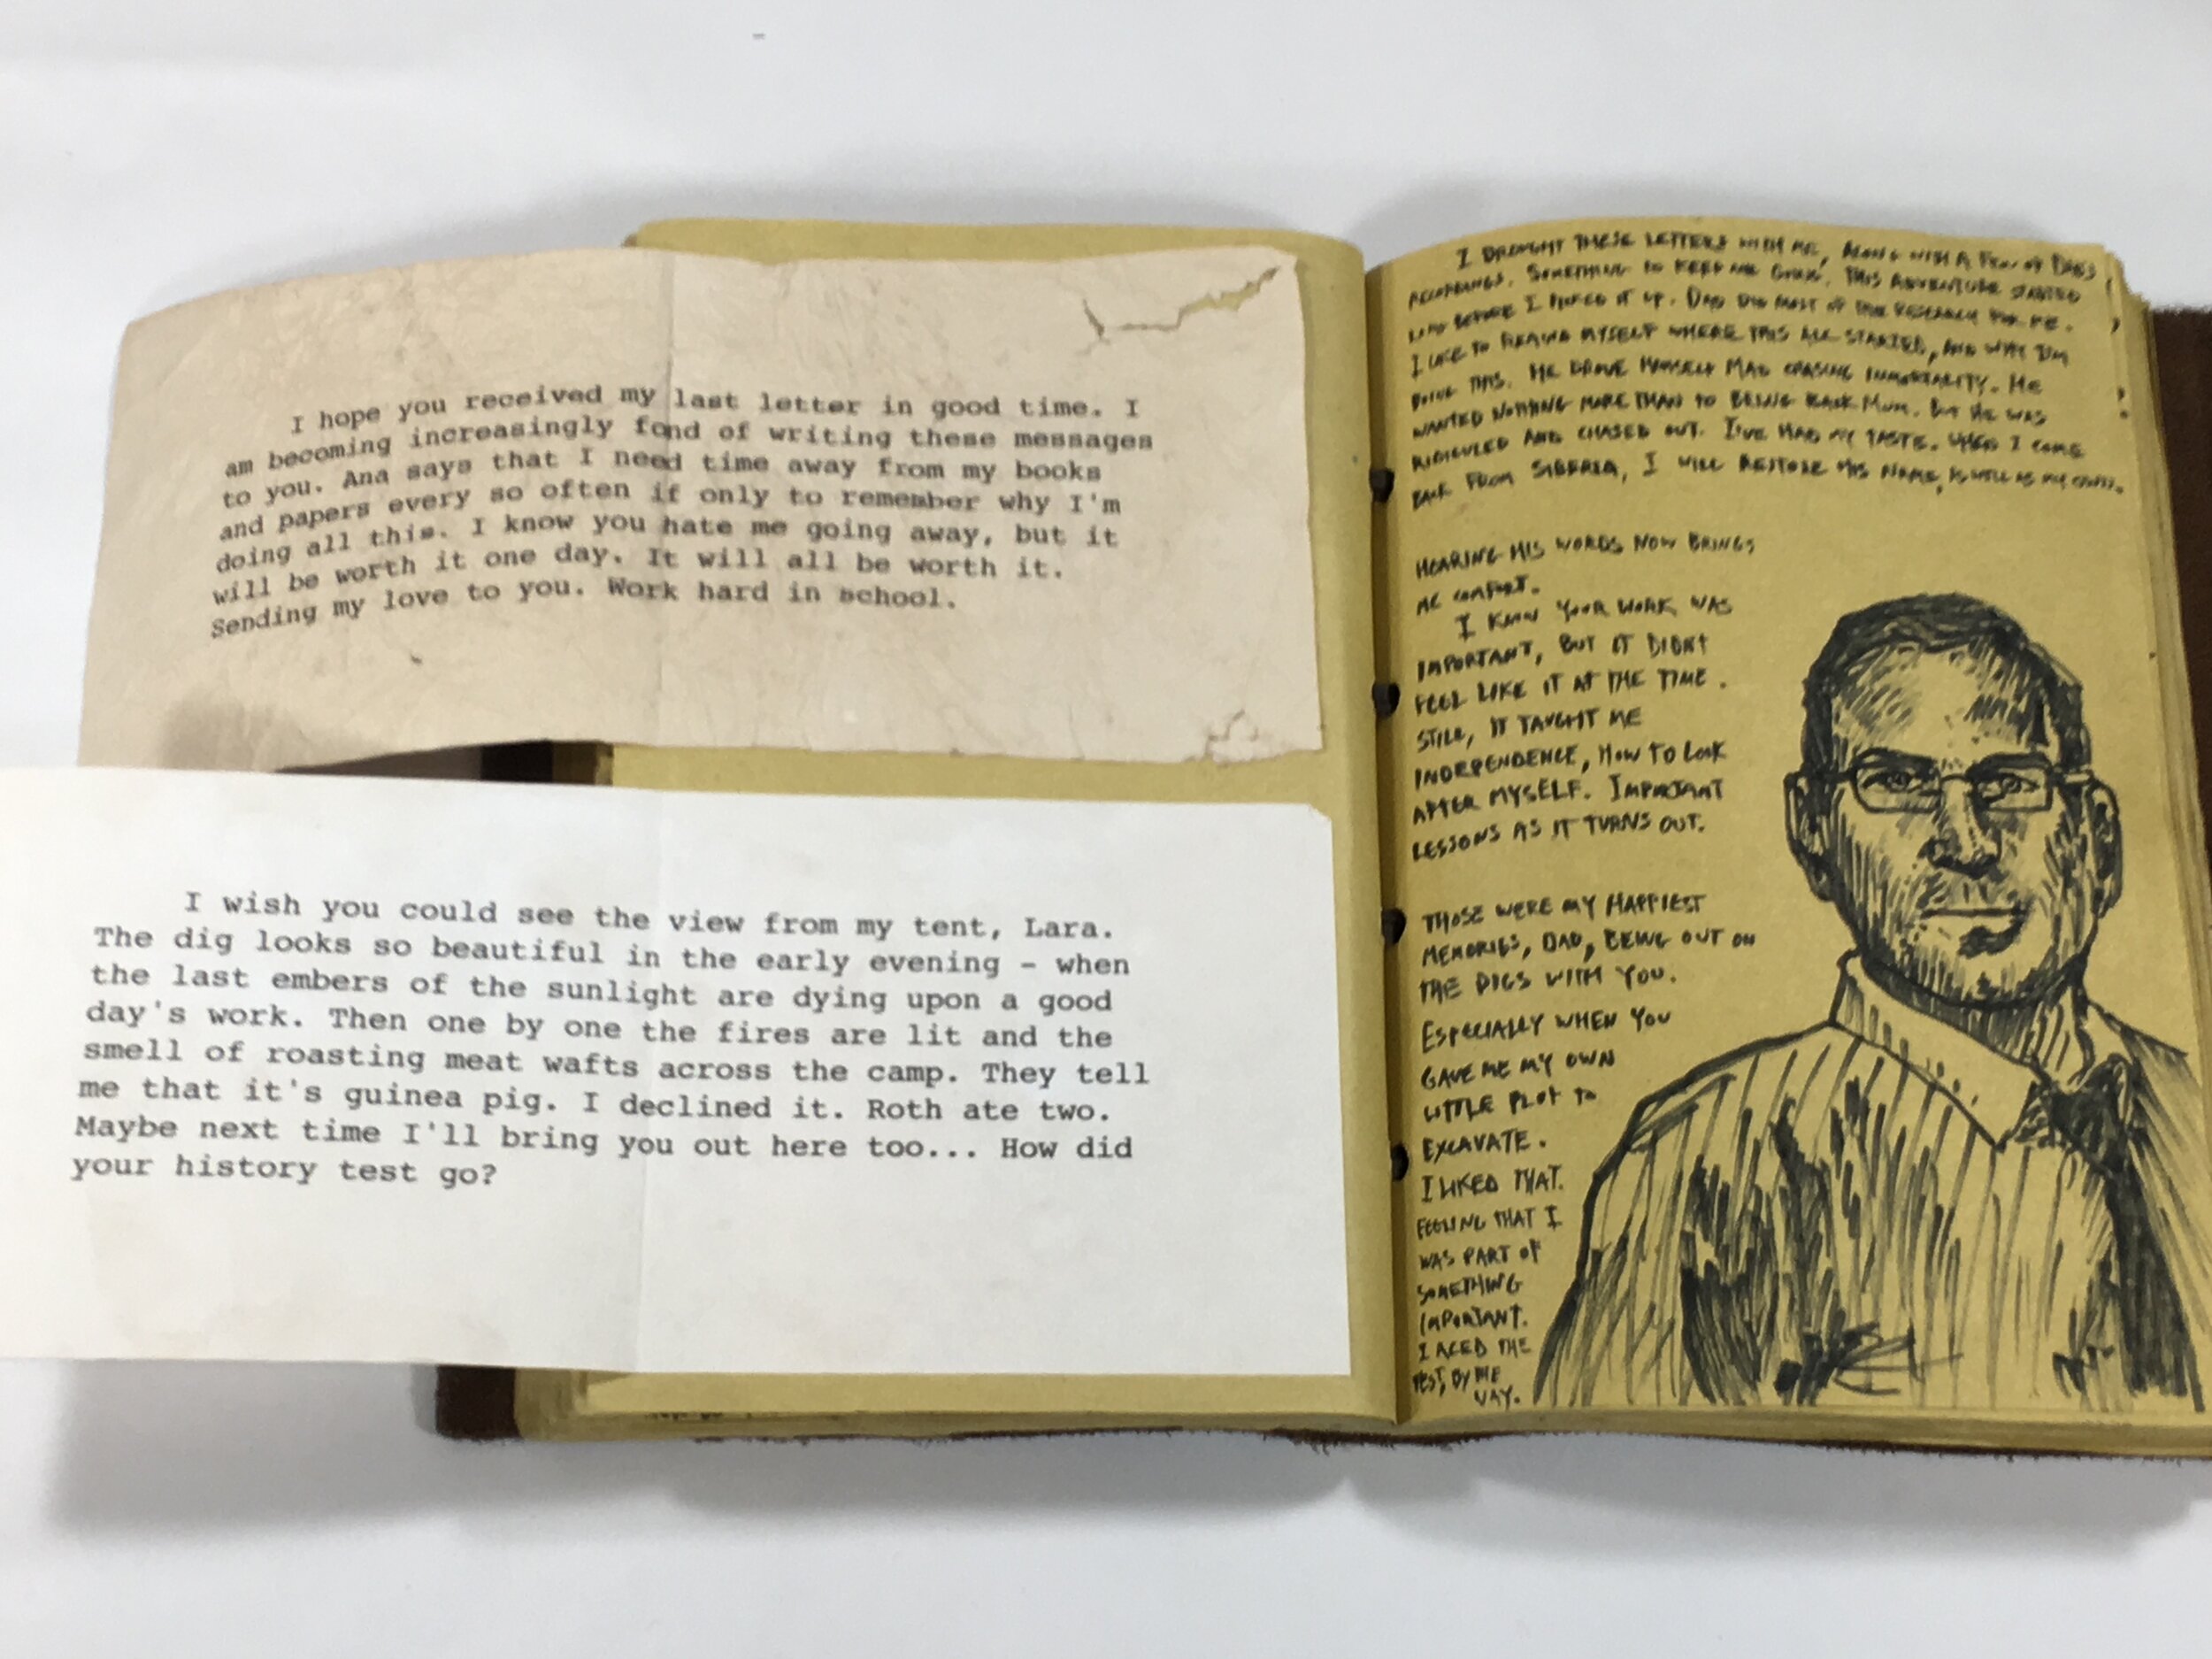 I hope you received my last letter in good time. I
am becoming increasingly fond of writing these messages
to you. Ana says that I need time away from my books
and papers every so often if only to remember why I'm
doing all this. I know you hate me going away, but it
will be worth it one day. It will all be worth it.
Sending my love to you. Work hard in school.
I wish you could see the view from my tent, Lara.
The dig looks so beautiful in the early evening - when
the last embers of the sunlight are dying upon a good
day's work. Then one by one the fires are lit and the
smell of roasting meat wafts across the camp. They tell
me that it's guinea pig. I declined it. Roth ate two.
Maybe next time I'll bring you out here too... How did
your history test go?
I BROUGHT THESE LETTERS WITH ME, ALONG WITH A FEW OF DAD'S
RECORDINGS. SOMETHING TO KEEP ME GOING. THIS ADVENTURE STARTED
LONG BEFORE I PICKED IT UP. DAD DID MOST OF THE RESEARCH FOR ME.
I LIKE TO REMIND MYSELF WHERE THIS ALL STARTED, AND WHY I'M
DOING THIS. HE DROVE HIMSELF MAD CHASING IMMORTALITY. HE
WANTED NOTHING MORE THAN TO BRING BACK MUM. BUT HE WAS
RIDICULED AND CHASED OUT. I'VE HAD MY TASTE. WHEN I COME
BACK FROM SIBERIA, I WILL RESTORE HIS NAME, AS WELL AS MY
HEARING HIS WORDS NOW BRINGS
ME COMFORT.
I KNOW YOUR WORK WAS
IMPORTANT, BUT IT DIDN'T
FEEL LIKE IT AT THE TIME.
STILL, IT TAUGHT ME
INDEPENDENCE, HOW TO LOOK
AFTER MYSELF. IMPORTANT
LESSONS AS IT TURNS OUT.
THOSE WERE MY HAPPIEST
MEMORIES, DAD, BEING OUT ON
THE DIGS WITH YOU.
ESPECIALLY WHEN YOU
GAVE ME MY OWN
LITTLE PLOT TO
EXCAVATE.
I LIKED THAT.
FEELING THAT I
WAS PART OF
SOMETHING
IMPORTANT.
I ACED THE
TEST, BY THE
WAY.